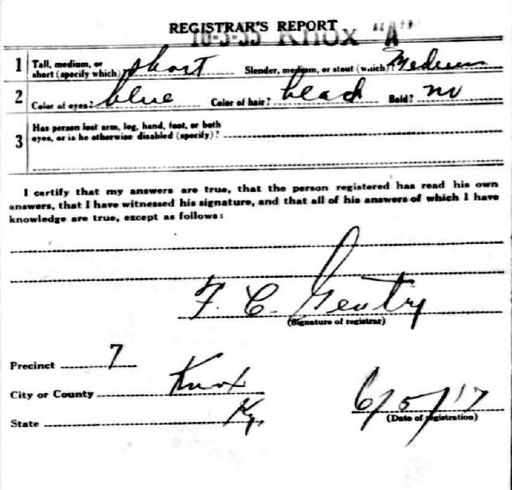 REGISTRAR'S REPORT
16-3-35 KNOX "A"
1 Tall, medium, or short (specify which)? short Slender, medium, or stout (which)? Medium
2 Color of eyes? blue Color of hair? black Bald? no
3 Has person lost arm, leg, hand, foot, or both
eyes, or is he otherwise disabled (specify)?
I certify that my answers are true, that the person registered has read his own
answers, that I have witnessed his signature, and that all of his answers of which I have
knowledge are true, except as follows:
F. C. Gentry
(Signature of registrar)
Precinct 7
City or County Knox
State Ky.
6/5/17
(Date of registration)